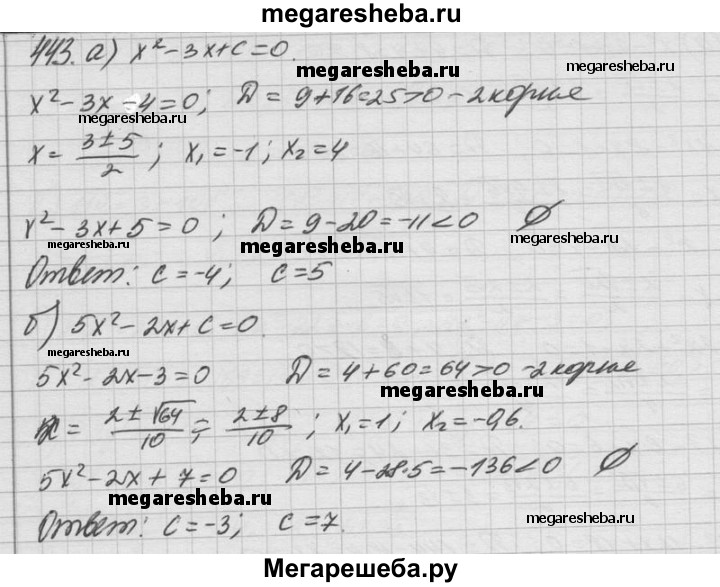 megaresheba.ru
443. а) x² - 3x + c = 0.
megaresheba.ru
x² - 3x - 4 = 0; D = 9 + 16 = 25 > 0 - 2 корня
megaresheba.ru megaresheba.ru
x = (3 ± 5)/2 ; x₁ = -1; x₂ = 4
x² - 3x + 5 = 0 ; D = 9 - 20 = -11 < 0 ∅
megaresheba.ru megaresheba.ru megaresheba.ru
Ответ: c = -4; c = 5
б) 5x² - 2x + c = 0
megaresheba.ru
5x² - 2x - 3 = 0 D = 4 + 60 = 64 > 0 - 2 корня
megaresheba.ru
x = (2 ± √64)/10 = (2 ± 8)/10 ; x₁ = 1; x₂ = -0,6.
5x² - 2x + 7 = 0 D = 4 - 28·5 = -136 < 0 ∅
megaresheba.ru megaresheba.ru
Ответ: c = -3; c = 7.
megaresheba.ru
Мегарешеба.ру